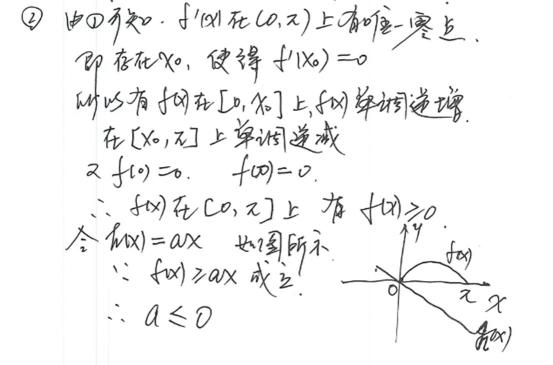 ② 由①可知. f'(x)在(0,π)上有唯一零点.
即存在x₀, 使得f'(x₀)=0
所以有f(x)在[0,x₀]上,f(x)单调递增.
在[x₀,π]上单调递减
又f(0)=0. f(π)=0.
∴ f(x)在[0,π]上有f(x)≥0
令h(x)=ax 如图所示
∵ f(x)≥ax成立!
∴ a≤0
y
f(x)
0
π
x
h(x)